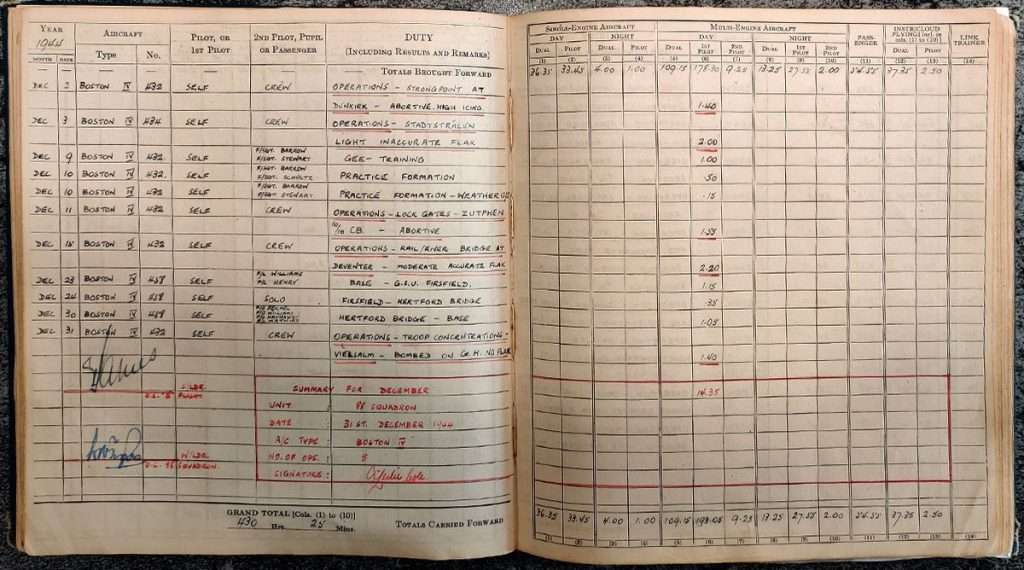 YEAR
1944
AIRCRAFT
PILOT, OR
1ST PILOT
2ND PILOT, PUPIL
OR PASSENGER
DUTY
(INCLUDING RESULTS AND REMARKS)
MONTH DATE Type No.
TOTALS BROUGHT FORWARD
DEC 2 BOSTON IV 432 SELF CREW OPERATIONS - STRONGPOINT AT
DUNKIRK - ABORTIVE. HIGH ICING.
DEC 3 BOSTON IV 434 SELF CREW OPERATIONS -
LIGHT INACCURATE FLAK
DEC 9 BOSTON IV 432 SELF F/SGT. BARROW F/SGT. STEWART GEE - TRAINING
DEC 10 BOSTON IV 432 SELF F/SGT. BARROW F/SGT. SCHULTZ PRACTICE FORMATION
DEC 10 BOSTON IV 432 SELF F/SGT. BARROW F/SGT. STEWART PRACTICE FORMATION - WEATHER
DEC 11 BOSTON IV 432 SELF CREW OPERATIONS - LOCK GATES - ZUTPHEN
10/10 CB. - ABORTIVE
DEC 15 BOSTON IV 432 SELF CREW OPERATIONS - RAIL/RIVER BRIDGE AT
DEVENTER - MODERATE ACCURATE FLAK
DEC 23 BOSTON IV SELF WILLIAMS HENRY BASE - G.S.U. FIRSFIELD.
DEC 24 BOSTON IV SELF SOLO FIRSFIELD - HERTFORD BRIDGE
DEC 30 BOSTON IV SELF HERTFORD BRIDGE - BASE
DEC 31 BOSTON IV 432 SELF CREW OPERATIONS - TROOP CONCENTRATIONS -
VIELSALM - BOMBED ON G.H. NO FLAK
S/LDR.
FLIGHT
SUMMARY FOR DECEMBER
UNIT : 88 SQUADRON
DATE : 31ST. DECEMBER 1944
A/C TYPE : BOSTON IV
NO. OF OPS. : 5
SIGNATURE :
W/CDR.
SQUADRON.
GRAND TOTAL [Cols. (1) to (10)]
430 Hrs. 25 Mins.
TOTALS CARRIED FORWARD
SINGLE-ENGINE AIRCRAFT
MULTI-ENGINE AIRCRAFT
PASS-
ENGER
INSTR/CLOUD
FLYING [Incl. in
cols. (1) to (10)]
LINK
TRAINER
DAY NIGHT DAY NIGHT
DUAL PILOT DUAL PILOT DUAL 1ST PILOT 2ND PILOT DUAL 1ST PILOT 2ND PILOT DUAL PILOT
(1) (2) (3) (4) (5) (6) (7) (8) (9) (10) (11) (12) (13) (14)
36.35 33.45 4.00 1.00 109.15 178.30 9.25 13.25 27.55 2.00 24.55 37.35 2.50
1.40
2.00
1.00
.50
.15
1.55
2.20
1.15
.35
1.05
1.40
14.35
36.35 33.45 4.00 1.00 109.15 193.05 9.25 13.25 27.55 2.00 24.55 37.35 2.50
(1) (2) (3) (4) (5) (6) (7) (8) (9) (10) (11) (12) (13) (14)